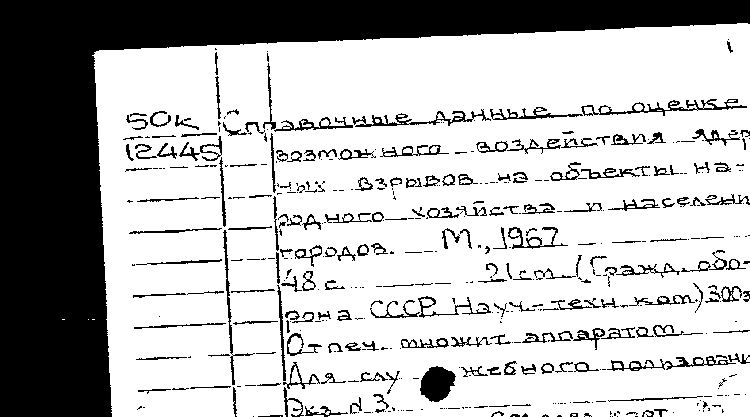 1
50к Справочные данные по оценке
12445 возможного воздействия ядер
ных взрывов на объекты на-
родного хозяйства и населени
городов. М., 1967
48 с. 21 см. (Гражд. обо-
рона СССР. Науч.-техн. ком.) 300э
Отпеч. множит. аппаратом.
Для служебного пользовани
Экз. № 3.